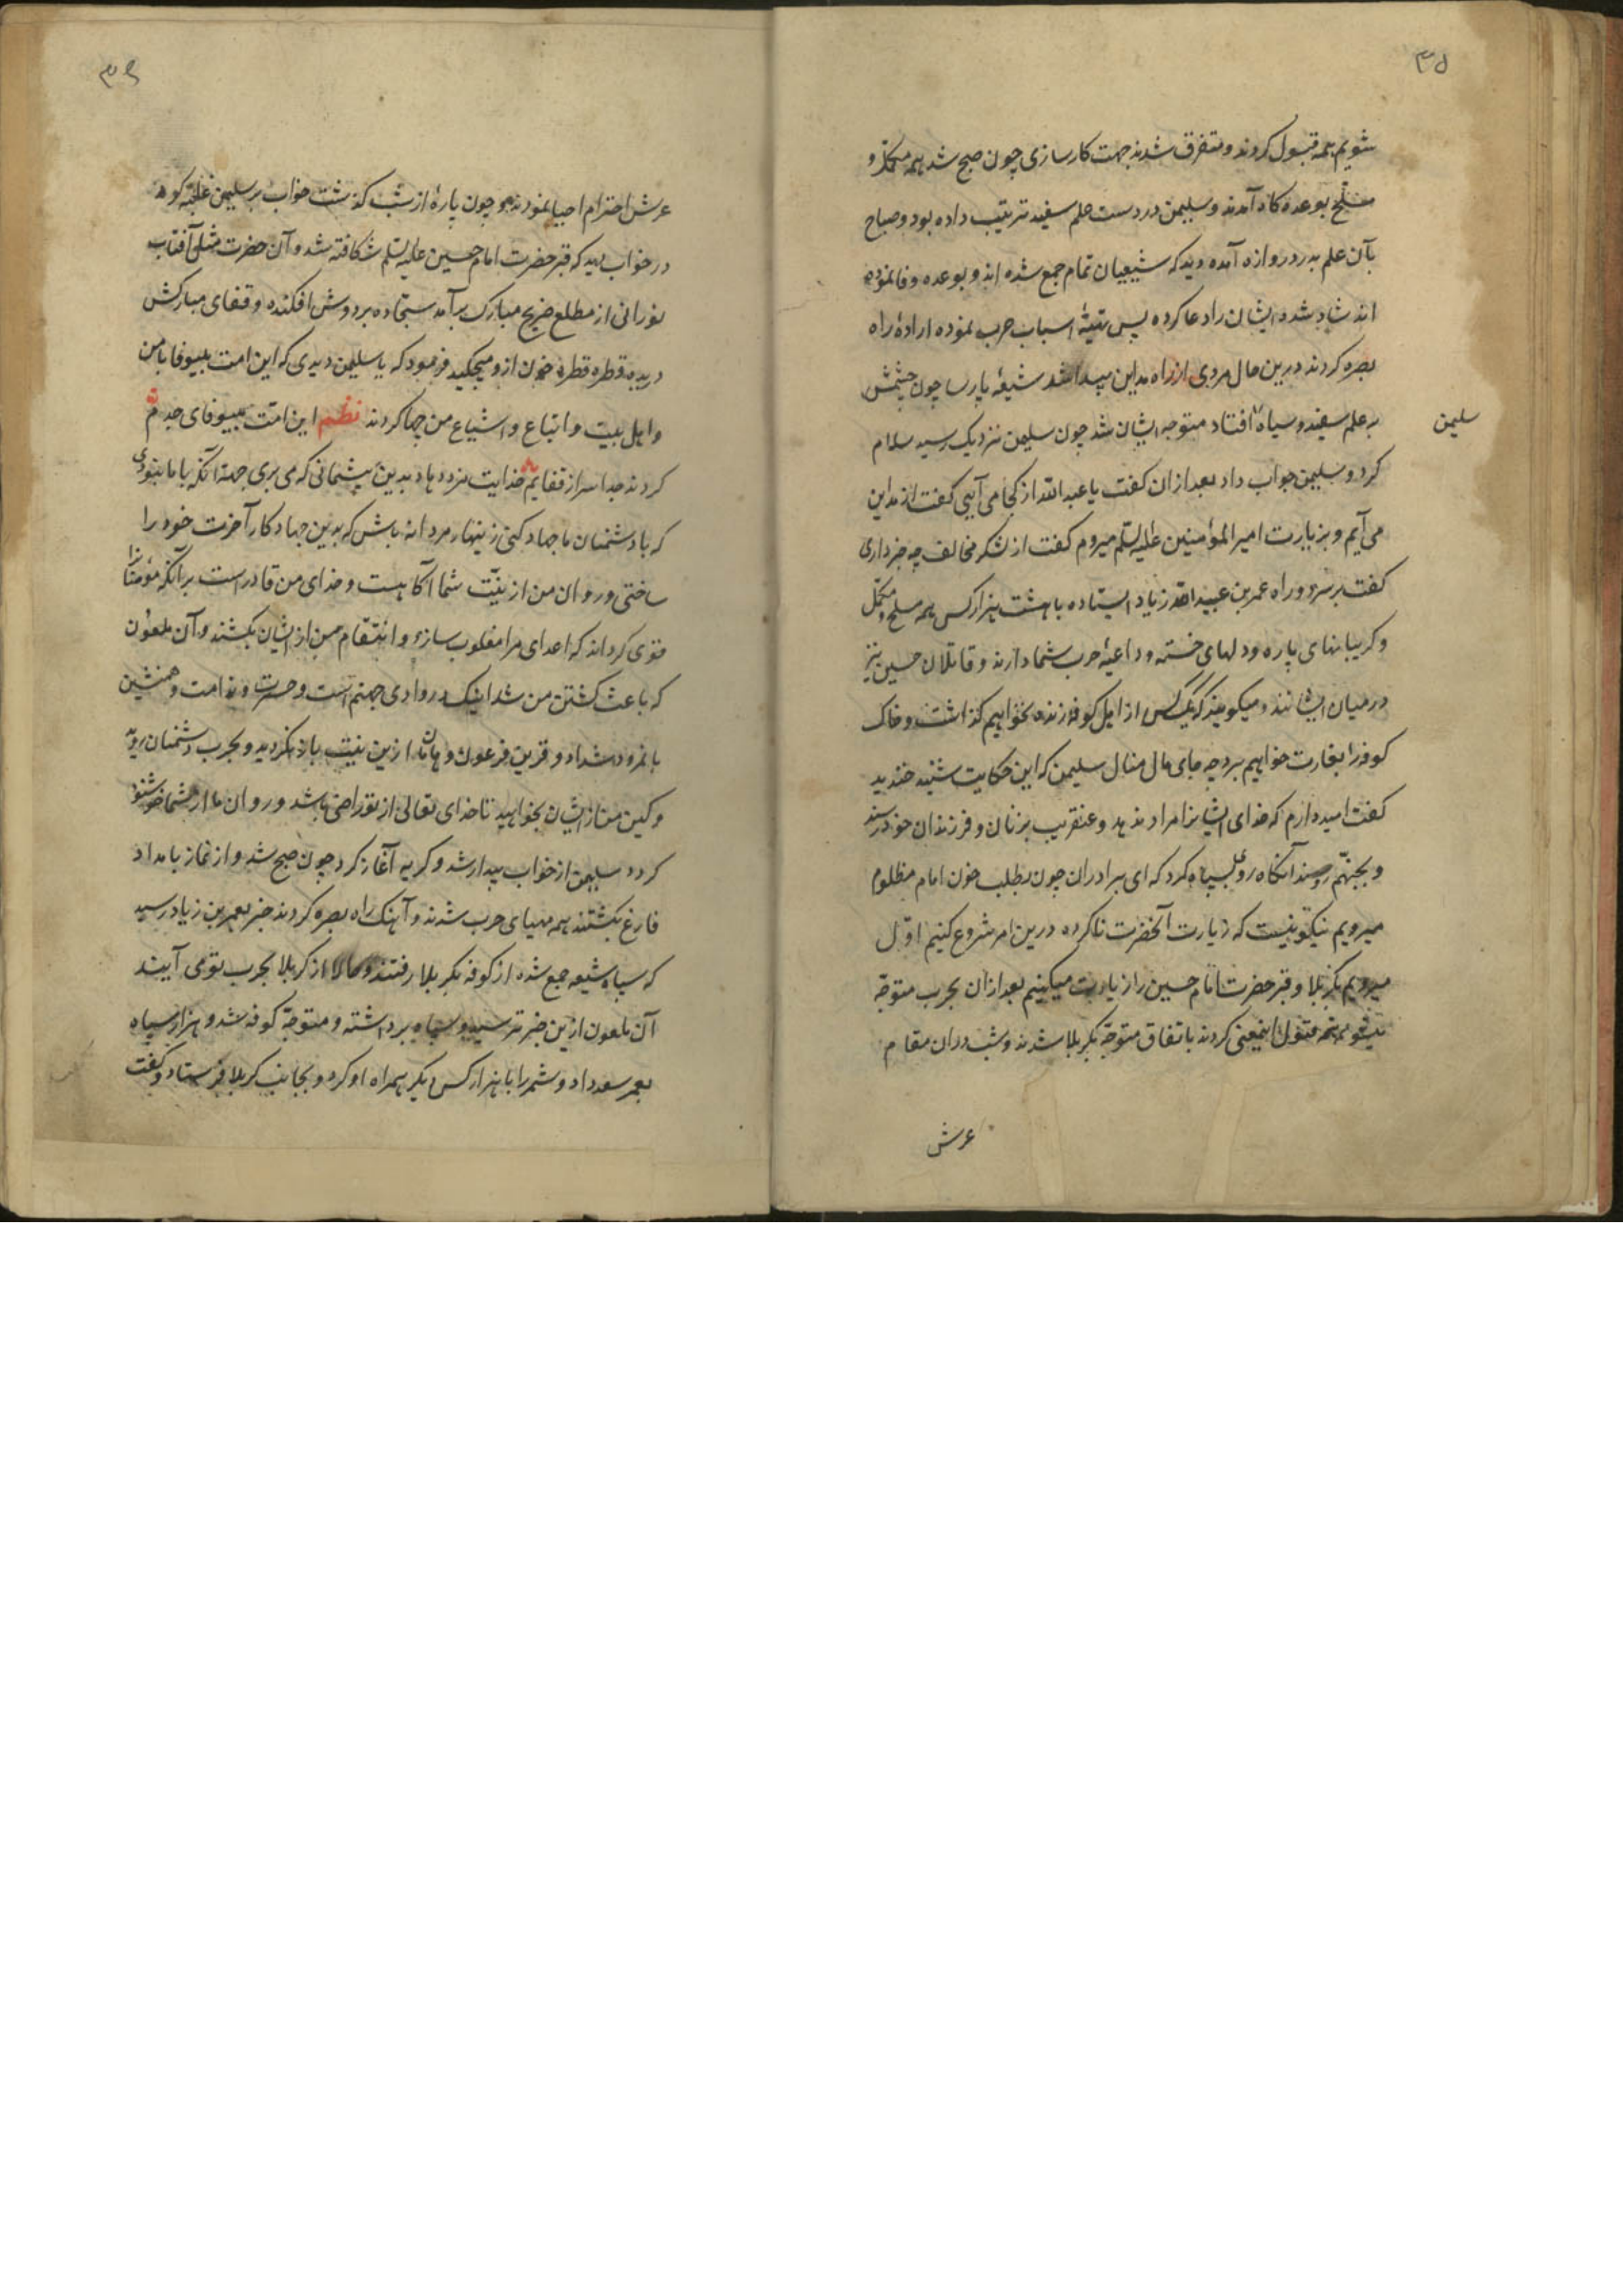 ۳۵
شویم همه قبول کردند و متفرق شدند جهت کارسازی چون صبح شد همه مکمل و
مسلح بوعده کاه آمدند و سلیمن در دست علم سفید ترتیب داده بود و صباح
بآن علم بدر دروازه آمده دید که شیعیان تمام جمع شده اند و بوعده وفا نموده
اند شاد شده ایشان را دعا کرده پس تهیهٔ اسباب حرب نموده ارادهٔ راه
بصره کردند درین حال مردی از راه مداین پیدا شد شیعهٔ پارسا چون چشمش
بر علم سفید و سپاه افتاد متوجه ایشان شد چون سلیمن نزدیک رسید سلام
سلیمن
کرد و سلیمن جواب داد بعد از ان کفت یا عبدالله از کجا می آیی کفت از مداین
می آیم و بزیارت امیر المؤمنین علیه السلم میروم کفت از لشکر مخالف چه خبر داری
کفت بر سر دو راه عمر بن عبیدالله زیاد ایستاده با هشت هزار کس همه مسلح و مکمل
و کریبانهای پاره و دلهای خسته و داعیهٔ حرب شما دارند و قاتلان حسین نیز
در میان ایشانند و میکویند که یک کس از اهل کوفه زنده نخواهیم کذاشت و خاک
کوفه را بغارت خواهیم برد چه جای مال منال سلیمن که این حکایت شنید خندید
کفت امیدوارم که خدای ایشانرا مراد ندهد و عنقریب بزنان و فرزندان خود نرسند
و بجهنم روند آنکاه روی بسپاه کرد که ای برادران چون بطلب خون امام مظلوم
میرویم نیکو نیست که زیارت آنحضرت ناکرده درین امر شروع کنیم اول
میرویم بکربلا و قبر حضرت امام حسین را زیارت میکنیم بعد از ان بحرب متوجه
میشویم همه قبول اینمعنی کردند باتفاق متوجه کربلا شدند و شب در ان مقام
عرش
۳۶
عرش احترام احیا نمودند و چون پارهٔ از شب کذشت خواب بر سلیمن غلبه کرد
در خواب دید که قبر حضرت امام حسین علیه السلم شکافته شد و آن حضرت مثل آفتاب
نورانی از مطلع ضریح مبارک برآمد سجاده بر دوش افکنده و قفای مبارکش
دریده قطره قطره خون ازو میچکید فرمود که یا سلیمن دیدی که این امت بیوفا با من
و اهل بیت و اتباع و اشیاع من چها کردند نظم این امت بیوفای جدم
کردند جدا سر از قفایم خدایت مزد دهاد بدین پشیمانی که می بری جهة آنکه با ما نبودی
که با دشمنان ما جهاد کنی زینهار مردانه باش که بدین جهاد کار آخرت خود را
ساختی و روان من از نیت شما آکاهست و خدای من قادر است بر آنکه مؤمنانرا
قوی کرداند که اعدای مرا مغلوب سازد و انتقام من از ایشان بکشند و آن ملعون
که باعث کشتن من شد اینک در وادی جهنم است و حسرت و ندامت و همنشین
با نمرود و شداد و قرین فرعون و هامان ازین نیت باز نکردید و بحرب دشمنان روید
و کین من از ایشان بخواهید تا خدای تعالی از تو راضی باشد و روان ما از شما خوشنود
کردد سلیمن از خواب بیدار شد و کریه آغاز کرد چون صبح شد و از نماز بامداد
فارغ کشتند همه مهیای حرب شدند و آهنک راه بصره کردند خبر بعمر بن زیاد رسید
که سپاه شیعه جمع شده از کوفه بکربلا رفتند و حالا از کربلا بحرب تو می آیند
آن ملعون ازین خبر ترسید و سپاه برداشته و متوجه کوفه شد و هزار سپاه
بعمر سعد داد و شمر را با هزار کس دیکر همراه او کرد و بجانب کربلا فرستاد و کفت